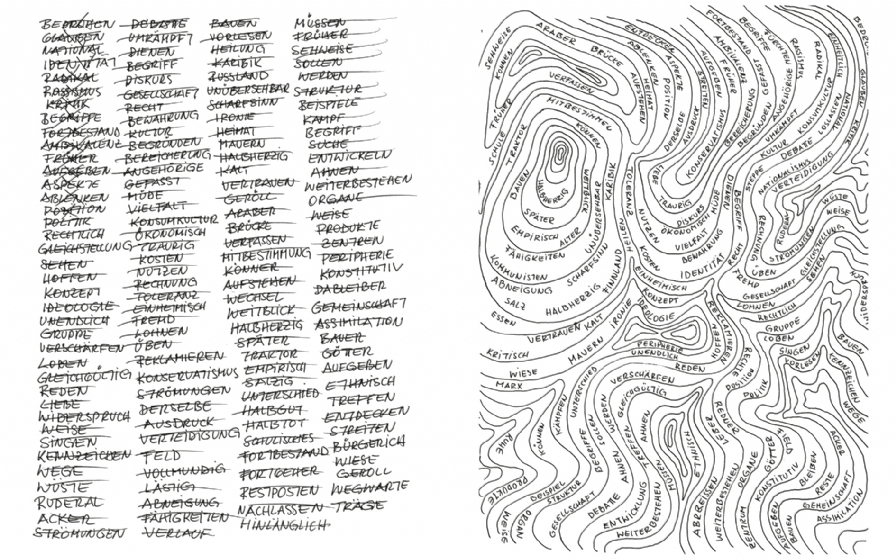 BEMÜHEN
GLAUBEN
NATIONAL
IDENTITÄT
RADIKAL
RASSISMUS
KRITIK
BEGRIFFE
FORTBESTAND
AMBIVALENZ
FRÜHER
AUFGEBEN
ASPEKTE
ABLENKEN
POSITION
POLITIK
RECHTLICH
GLEICHSTELLUNG
SEHEN
HOFFEN
KONZEPT
IDEOLOGIE
UNENDLICH
GRUPPE
VERSCHÄRFEN
LOBEN
GLEICHGÜLTIG
REDEN
LIEBE
WIDERSPRUCH
WEISE
SINGEN
KENNZEICHEN
WEGE
WÜSTE
RUDERAL
ACKER
STRÖMUNGEN
DEBATTE
UMKÄMPFT
DIENEN
BEGRIFF
DISKURS
GESELLSCHAFT
RECHT
BEWAHRUNG
KULTUR
BEGRÜNDEN
BEREICHERUNG
ANGEHÖRIGE
GEFASST
MÜDE
VIELFALT
KONSUMKULTUR
ÖKONOMISCH
TRAURIG
KOSTEN
NUTZEN
RECHNUNG
TOLERANZ
EINHEIMISCH
FREMD
LOHNEN
ÜBEN
REKLAMIEREN
KONSERVATISMUS
STRÖMUNGEN
DERSELBE
AUSDRUCK
VERTEIDIGUNG
FELD
VOLLMUNDIG
LÄSTIG
ABNEIGUNG
FÄHIGKEITEN
VERLAUF
BAUEN
VORLESEN
HEILUNG
KARIBIK
RUSSLAND
UNÜBERSEHBAR
SCHARFSINN
IRONIE
HEIMAT
MAUERN
HALBHERZIG
KALT
VERTRAUEN
GERÖLL
ARABER
BRÜCKE
VERPASSEN
MITBESTIMMUNG
KÖNNER
AUFSTEHEN
WECHSEL
WEITBLICK
HALBHERZIG
SPÄTER
TRAKTOR
EMPIRISCH
SALZIG
UNTERSCHIED
HALBGUT
HALBTOT
SCHULISCHES
FORTBESTAND
FORTGEHER
RESTPOSTEN
NACHLASSEN
HINLÄNGLICH
MÜSSEN
FRÜHER
SEHWEISE
SOLLEN
WERDEN
STRUKTUR
BEISPIELE
KAMPF
BEGRIFF
SUCHE
ENTWICKELN
AHNEN
WEITERBESTEHEN
ORGANE
WEISE
PRODUKTE
ZENTREN
PERIPHERIE
KONSTITUTIV
DABLEIBER
GEMEINSCHAFT
ASSIMILATION
BAUER
GÖTTER
AUFGEBEN
ETHNISCH
TREFFEN
ENTDECKEN
STREITEN
BÜRGERICH
WIESE
GERÖLL
WEGWARTE
TRÄGE
SEHWEISE
KÖNNEN
ARABER
BRÜCKE
VERPASSEN
MITBESTIMMEN
FRÜHER
SCHULE
TRAKTOR
BAUEN
HALBHERZIG
SPÄTER
EMPIRISCH
ALTER
FÄHIGKEITEN
KOMMUNISTEN
ABNEIGUNG
SALZ
ESSEN
SCHARFSINN
UNÜBERSEHBAR
KARIBIK
FINNLAND
HALBHERZIG
VERTRAUEN
KALT
MAUERN
IRONIE
KRITISCH
WIESE
MARX
ENTDECKEN
ABLENKEN
HEIMAT
AUFSTEHEN
ASPEKTE
POSITION
DERSELBE
AUSDRUCK
AUFGEBEN
KONSERVATISMUS
FRÜHER
AMBIVALENZ
FORTBESTAND
BEGRIFFE
GEFASST
BEREICHERUNG
BEGRÜNDEN
ANGEHÖRIGE
RASSISMUS
RADIKAL
UMKÄMPFT
KONSUMKULTUR
KULTUR
DEBATTE
LOSLASSEN
NATIONAL
EINHEITLICH
GLAUBEN
KRITIK
NATIONALISMUS
VERTEIDIGUNG
STEPPE
WÜSTE
WEISE
RUDERAL
RECHNUNG
STRÖMUNGEN
GLEICHSTELLUNG
SEHEN
ÜBEN
FREMD
RECHT
BEGRIFF
DIENEN
MÜDE
LIEBE
TRAURIG
DISKURS
ÖKONOMISCH
VIELFALT
BEWAHRUNG
IDENTITÄT
TOLERANZ
NUTZEN
KOSTEN
EINHEIMISCH
KONZEPT
IDEOLOGIE
PERIPHERIE
UNENDLICH
REDEN
VERSCHÄRFEN
GLEICHGÜLTIG
HOFFEN
REKLAMIEREN
GESELLSCHAFT
LOHNEN
RECHTLICH
GRUPPE
LOBEN
SINGEN
VORLESEN
BAUEN
KENNZEICHEN
WEGE
WIDERSPRUCH
POLITIK
POSITION
REGALE
UNTERSCHIED
KÄMPFEN
KÖNNEN
BEGRIFFE
SOLLEN
WERDEN
TREFFEN
AHNEN
MÜSSEN
ETHNISCH
RUHE
PRODUKTE
WEISE
ORGAN
BEISPIEL
STRUKTUR
GESELLSCHAFT
DEBATTE
ENTWICKLUNG
WEITERBESTEHEN
ABKREISEN
WEITERBESTEHEN
ZENTRUM
ORGANE
GÖTTER
FELD
KONSTITUTIV
BLEIBEN
ACKER
RESTE
GEMEINSCHAFT
ASSIMILATION
AUFGEBEN
BAUEN